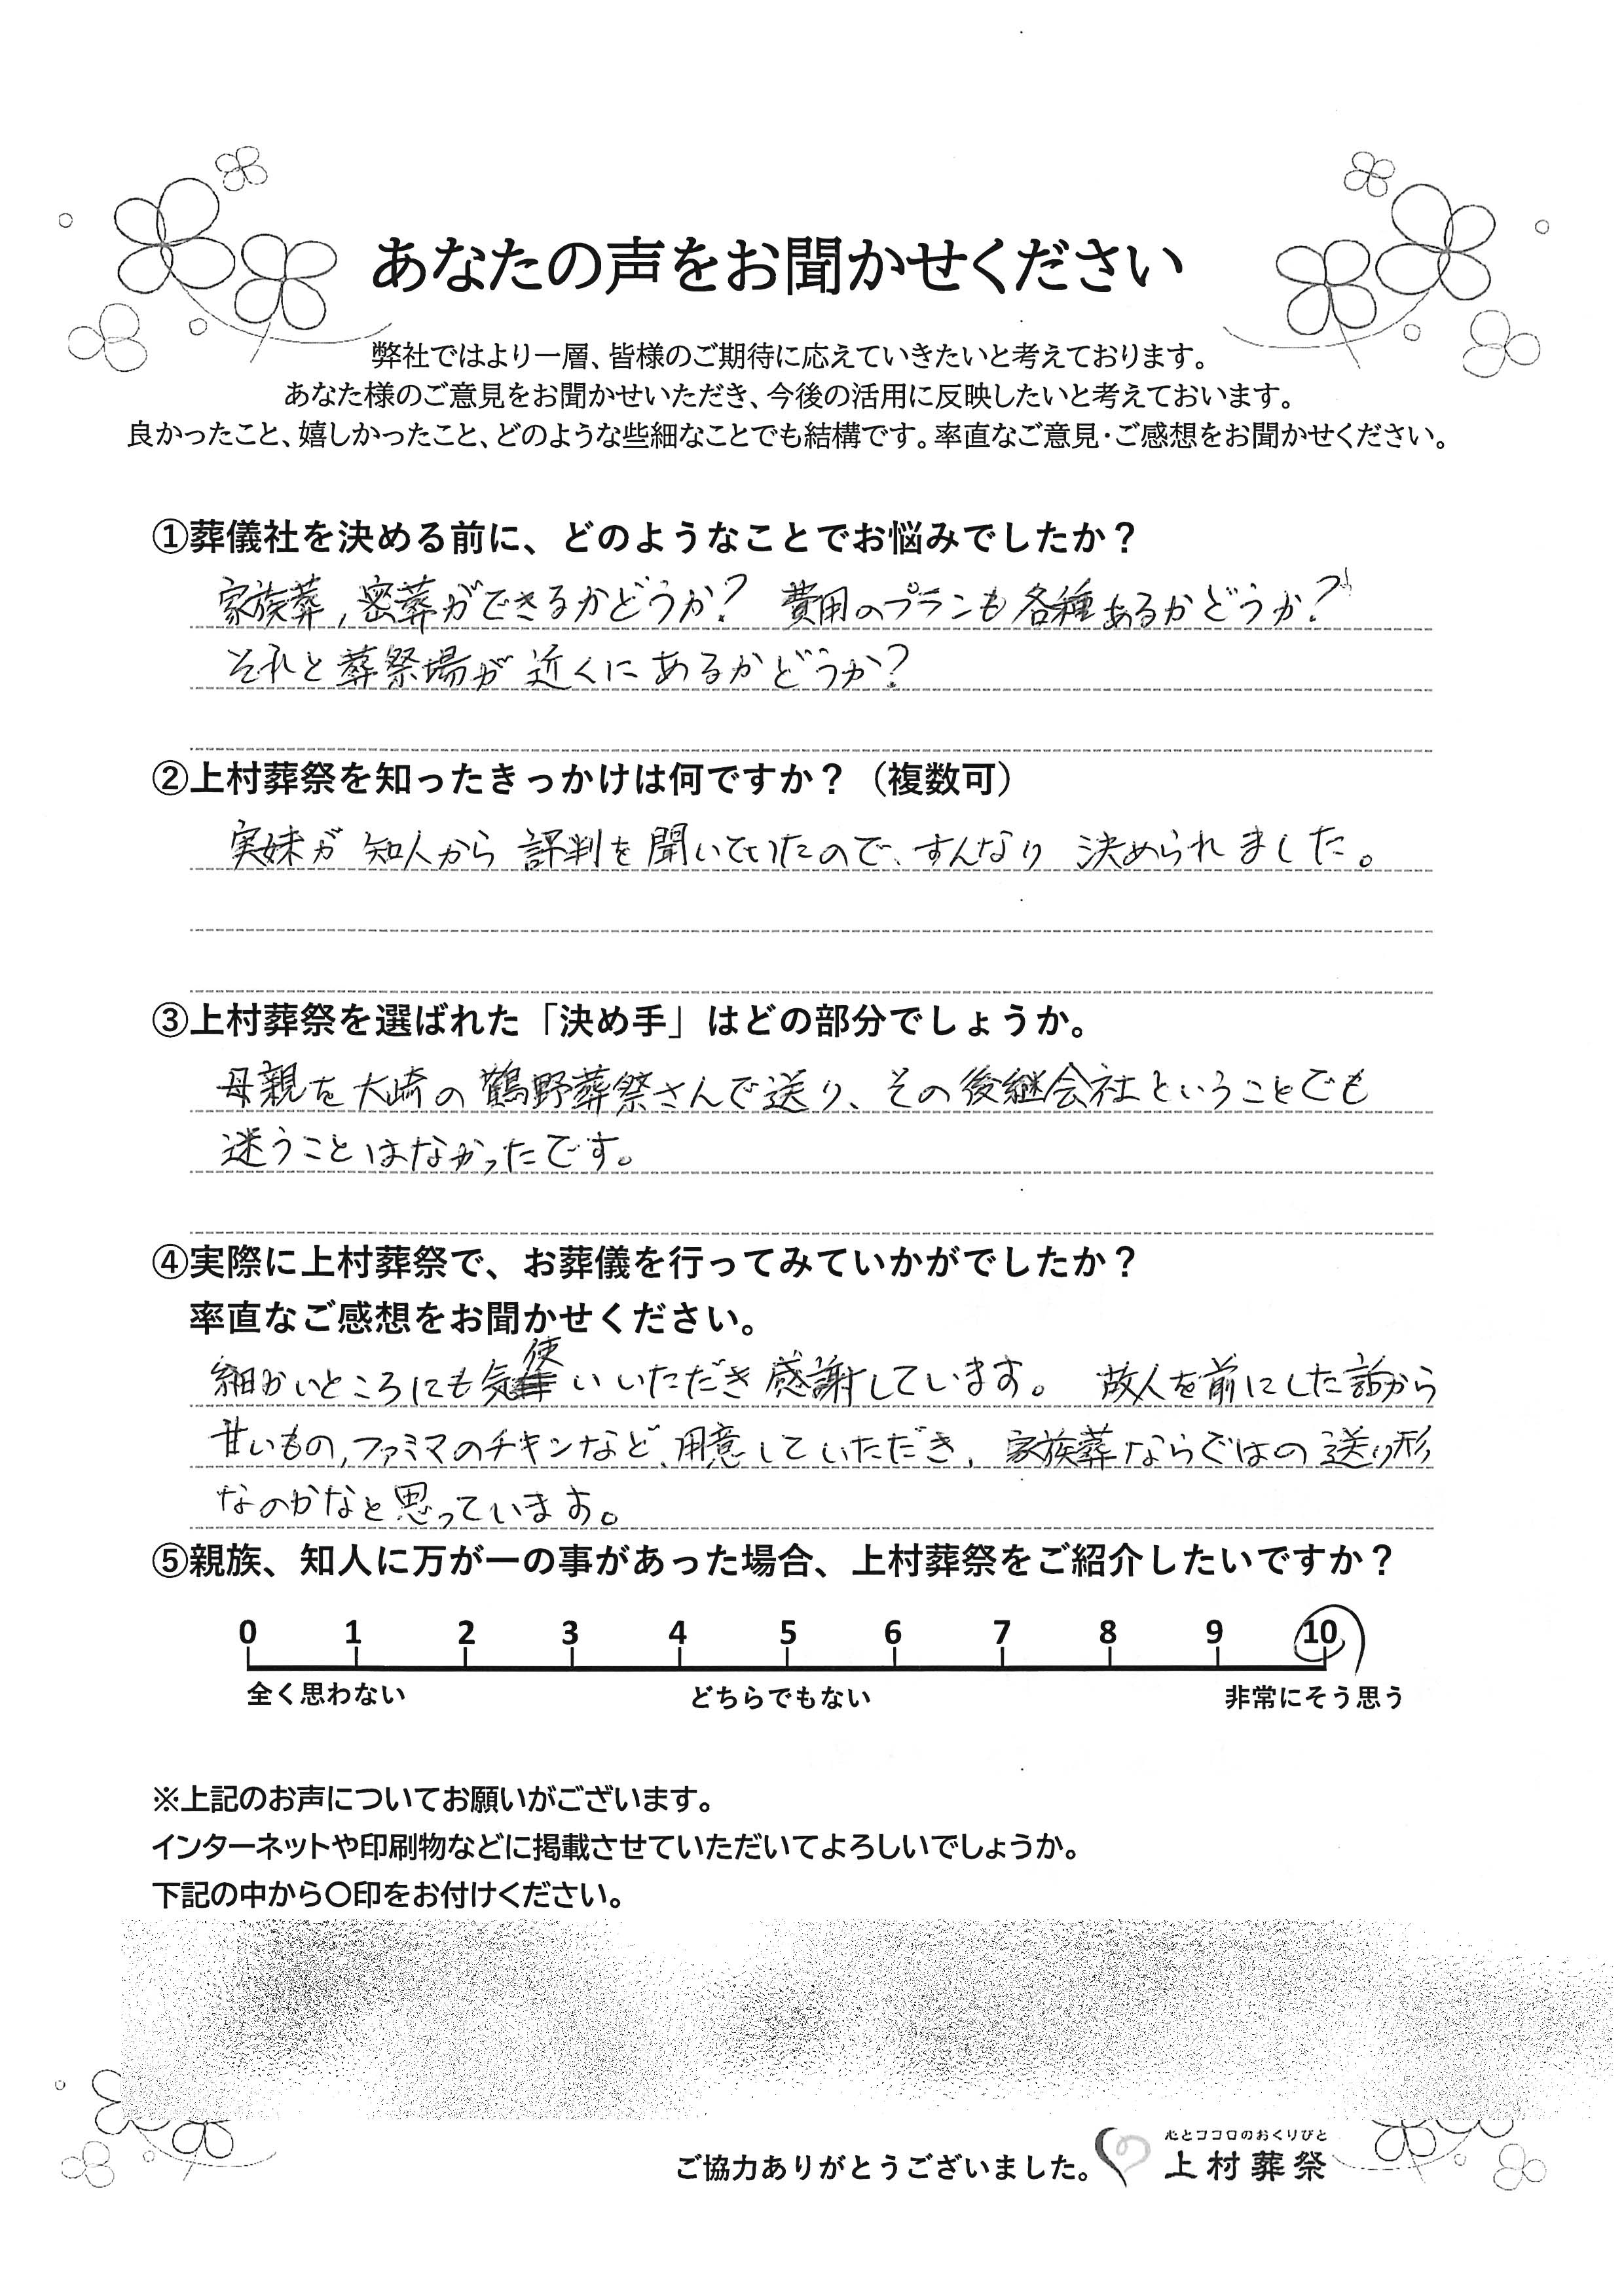 あなたの声をお聞かせください
弊社ではより一層、皆様のご期待に応えていきたいと考えております。
あなた様のご意見をお聞かせいただき、今後の活用に反映したいと考えておいます。
良かったこと、嬉しかったこと、どのような些細なことでも結構です。率直なご意見・ご感想をお聞かせください。
①葬儀社を決める前に、どのようなことでお悩みでしたか？
家族葬,密葬ができるかどうか？ 費用のプランも各種あるかどうか？
それと葬祭場が近くにあるかどうか？
②上村葬祭を知ったきっかけは何ですか？（複数可）
実妹が知人から評判を聞いていたので、すんなり決められました。
③上村葬祭を選ばれた「決め手」はどの部分でしょうか。
母親を大崎の鶴野葬祭さんで送り、その後継会社ということでも
迷うことはなかったです。
④実際に上村葬祭で、お葬儀を行ってみていかがでしたか？
率直なご感想をお聞かせください。
細かいところにも気使いいただき感謝しています。 故人を前にした話から
甘いもの,ファミマのチキンなど、用意していただき、家族葬ならではの送り形
なのかなと思っています。
⑤親族、知人に万が一の事があった場合、上村葬祭をご紹介したいですか？
0 1 2 3 4 5 6 7 8 9 10
全く思わない どちらでもない 非常にそう思う
※上記のお声についてお願いがございます。
インターネットや印刷物などに掲載させていただいてよろしいでしょうか。
下記の中から〇印をお付けください。
心とココロのおくりびと
ご協力ありがとうございました。 上村葬祭